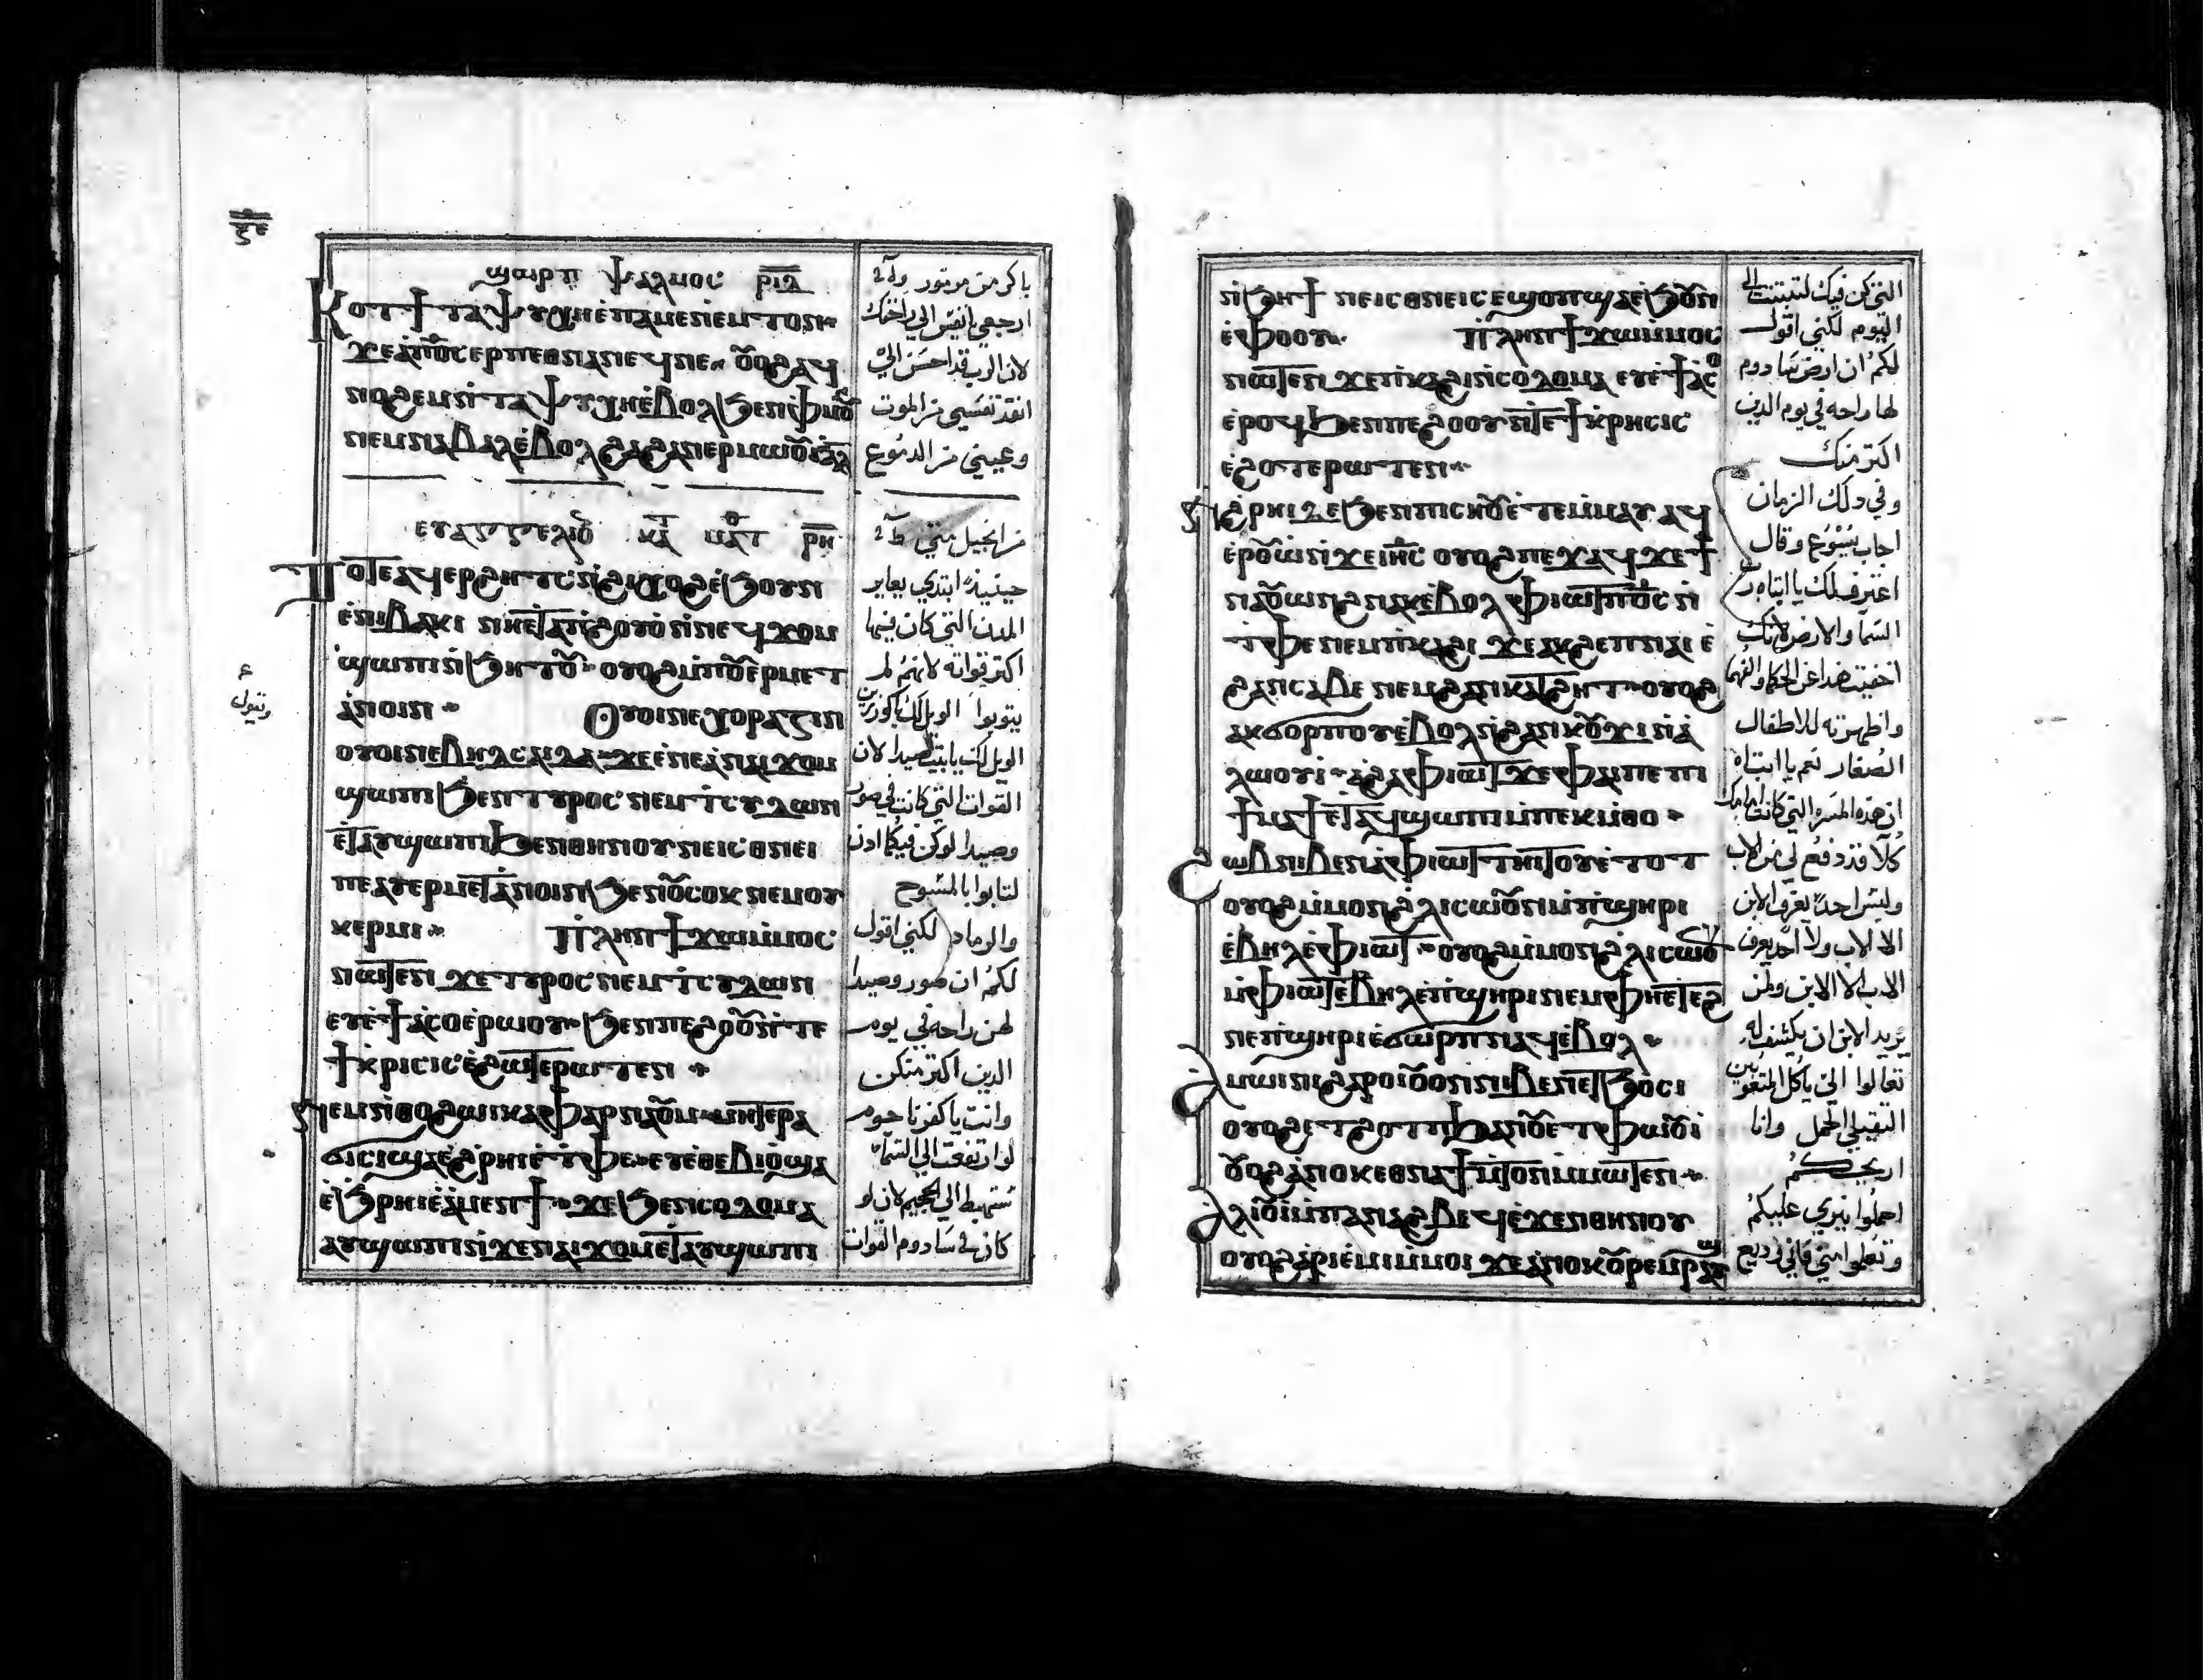 ϣⲱⲣⲡ ⲯⲁⲗⲙⲟⲥ ⲣⲓⲇ
ⲕⲟⲧϯ ⲧⲁⲯⲩⲭⲏ ⲉⲡⲁⲙⲉⲛⲉⲙⲧⲟⲛ
ϫⲉ ⲁⲡⲟ̅ⲥ̅ ⲉⲣⲡⲉⲑⲛⲁⲛⲉϥ ⲛⲉ ⲟⲩⲟϩ ⲁϥ
ⲛⲟϩⲉⲙ ⲛⲧⲁⲯⲩⲭⲏ ⲉⲃⲟⲗ ϧⲉⲛ ⲫⲙⲟⲩ
ⲛⲉⲙ ⲛⲁⲃⲁⲗ ⲉⲃⲟⲗ ϩⲁ ϩⲁⲛⲉⲣⲙⲱⲟⲩⲓ
باكر من مزمور
ارجعي يا نفسي الي راحتك
لان الرب قد احسن الي
انقذ نفسي من الموت
وعيني من الدموع
ⲉⲩⲁⲅⲅⲉⲗⲓⲟⲩ ⲕⲁⲧ ⲙⲁⲧ ⲣⲏ
ⲧⲟⲧⲉ ⲁϥⲉⲣϩⲏⲧⲥ ⲛϩⲓϣⲱϣ ⲉϧⲟⲩⲛ
ⲉⲛⲓⲃⲁⲕⲓ ⲛⲏⲉⲧⲁ ⲛⲓϩⲟⲩⲟ ⲛⲧⲉ ⲛⲉϥϫⲟⲙ
ϣⲱⲡⲓ ⲛϧⲏⲧⲟⲩ ⲟⲩⲟϩ ⲙⲡⲟⲩⲉⲣⲙⲉⲧ
ⲁⲛⲟⲓⲛ ⲟⲩⲟⲓ ⲛⲉ ⲭⲟⲣⲁⲍⲓⲛ
ⲟⲩⲟⲓ ⲛⲉ ⲃⲏⲇⲥⲁⲓⲇⲁ ϫⲉ ⲉⲛⲉ ⲁ ⲛⲁⲓϫⲟⲙ
ϣⲱⲡⲓ ϧⲉⲛ ⲧⲩⲣⲟⲥ ⲛⲉⲙ ⲧⲥⲩⲇⲱⲛ
ⲉⲧⲁⲩϣⲱⲡⲓ ϧⲉⲛ ⲑⲏⲛⲟⲩ ⲛⲉ ⲓⲥ ⲑⲛⲉⲓ
ⲡⲉ ⲁⲩⲉⲣⲙⲉⲧⲁⲛⲟⲓⲛ ϧⲉⲛ ⲟⲩⲥⲟⲕ ⲛⲉⲙ ⲟⲩ
ⲕⲉⲣⲙⲓ ⲡⲗⲏⲛ ϯϫⲱ ⲙⲙⲟⲥ
ⲛⲱⲧⲉⲛ ϫⲉ ⲧⲩⲣⲟⲥ ⲛⲉⲙ ⲧⲥⲩⲇⲱⲛ
ⲉⲩⲉϯⲁⲥⲟ ⲉⲣⲱⲟⲩ ϧⲉⲛ ⲡⲉϩⲟⲟⲩ ⲛⲧⲉ
ϯⲕⲣⲓⲥⲓⲥ ⲉϩⲱⲧⲉⲣⲱⲧⲉⲛ
ⲛⲉⲙ ⲛⲑⲟ ϩⲱⲓ ⲕⲁⲫⲁⲣⲛⲁⲟⲩⲙ ⲙⲏ ⲧⲉⲣⲁ
ϭⲓⲥⲓ ϣⲁ ⲉϩⲣⲏⲓ ⲉⲧⲫⲉ ⲉⲩⲉⲑⲉⲃⲓⲟ ϣⲁ
ⲉϧⲣⲏⲓ ⲉⲁⲙⲉⲛϯ ϫⲉ ϧⲉⲛ ⲥⲟⲇⲟⲙⲁ
ⲁⲩϣⲱⲡⲓ ⲛϫⲉ ⲛⲁⲓϫⲟⲙ ⲉⲧⲁⲩϣⲱⲡⲓ
من انجيل متي
حينيذ ابتدي يعاير
المدن التي كان فيها
اكتر قواته لانهم لم
يتوبوا الويل لك يا كورزين
الويل لك يا بيت صيدا لان
القوات التي كانت في صور
وصيدا لو كن فيكما اذن
لتابوا بالمسوح
والرماد لكني اقول
لكم ان صور وصيدا
لهن راحه في يوم
الدين اكتر منكن
وانت يا كفرناحوم
لو ارتفعت الي السماء
ستهبط الي الجحيم لان لو
كان في سادوم القوات
وتقول
ⲛϧⲏϯ ⲛⲉ ⲓⲥ ⲑⲛⲉ ⲓⲥ ⲉϣⲟⲡ ϣⲁ ⲉϧⲟⲩⲛ
ⲉⲫⲟⲟⲩ ⲡⲗⲏⲛ ϯϫⲱ ⲙⲙⲟⲥ
ⲛⲱⲧⲉⲛ ϫⲉ ⲡⲕⲁϩⲓ ⲛⲥⲟⲇⲟⲙⲁ ⲉⲩⲉϯⲁⲥⲟ
ⲉⲣⲟϥ ϧⲉⲛ ⲡⲉϩⲟⲟⲩ ⲛⲧⲉ ϯⲕⲣⲏⲥⲓⲥ
ⲉϩⲟⲧⲉⲣⲱⲧⲉⲛ
ⲛϩⲣⲏⲓ ⲇⲉ ϧⲉⲛ ⲡⲓⲥⲏⲟⲩ ⲉⲧⲉⲙⲙⲁⲩ ⲁϥ
ⲉⲣⲟⲩⲱ ⲛϫⲉ ⲓⲏⲥ ⲟⲩⲟϩ ⲡⲉϫⲁϥ ϫⲉ ϯ
ⲛⲁⲟⲩⲱⲛϩ ⲛⲁⲕ ⲉⲃⲟⲗ ⲫⲓⲱⲧ ⲡⲟ̅ⲥ̅ ⲛ
ⲧⲫⲉ ⲛⲉⲙ ⲡⲕⲁϩⲓ ϫⲉ ⲁⲕϩⲉⲡ ⲛⲁⲓ ⲉ
ϩⲁⲛⲥⲁⲃⲉ ⲛⲉⲙ ϩⲁⲛⲕⲁⲧϩⲏⲧ ⲟⲩⲟϩ
ⲁⲕϭⲟⲣⲡⲟⲩ ⲉⲃⲟⲗ ⲛϩⲁⲛⲕⲟⲩϫⲓ ⲛⲁ
ⲗⲱⲟⲩⲓ ⲁϩⲁ ⲫⲓⲱⲧ ϫⲉ ⲫⲁⲓ ⲡⲉ ⲡⲓ
ϯⲙⲁϯ ⲉⲧⲁϥϣⲱⲡⲓ ⲙⲡⲉⲕⲙⲑⲟ
ϩⲱⲃ ⲛⲓⲃⲉⲛ ⲁ ⲫⲓⲱⲧ ⲧⲏⲓⲧⲟⲩ ⲉⲧⲟⲧ
ⲟⲩⲟϩ ⲙⲙⲟⲛ ϩⲗⲓ ⲥⲱⲟⲩⲛ ⲙⲡϣⲏⲣⲓ
ⲉⲃⲏⲗ ⲉⲫⲓⲱⲧ ⲟⲩⲟϩ ⲙⲙⲟⲛ ϩⲗⲓ ⲥⲱⲟⲩⲛ
ⲙⲫⲓⲱⲧ ⲉⲃⲏⲗ ⲉⲡϣⲏⲣⲓ ⲛⲉⲙ ⲫⲏ ⲉⲧⲉϩ
ⲛⲉ ⲡϣⲏⲣⲓ ⲉϭⲱⲣⲡ ⲛⲁϥ ⲉⲃⲟⲗ
ⲁⲙⲱⲓⲛⲓ ϩⲁⲣⲟⲓ ⲟⲩⲟⲛ ⲛⲓⲃⲉⲛ ⲉⲧϧⲟⲥⲓ
ⲟⲩⲟϩ ⲉⲧϩⲟⲡⲡ ϧⲁ ⲛⲟⲩⲉⲧⲫⲱⲟⲩⲓ
ⲟⲩⲟϩ ⲁⲛⲟⲕ ⲉⲑⲛⲁϯⲙⲧⲟⲛ ⲛⲱⲧⲉⲛ
ⲁⲗⲓⲟⲩⲓ ⲙⲡⲁⲛⲁϩⲃⲉϥ ⲉϫⲉⲛ ⲑⲏⲛⲟⲩ
ⲟⲩⲟϩ ⲁⲣⲓⲉⲙⲓ ⲙⲙⲟⲓ ϫⲉ ⲁⲛⲟⲕ ⲟⲩⲣⲉⲙⲣⲁⲩϣ
التي كن فيك لتبتت الي
اليوم لكني اقول
لكم ان ارض سادوم
لها راحه في يوم الدين
اكتر منك
وفي ذلك الزمان
اجاب يسوع وقال
اعترف لك يا ابتاه رب
السما والارض لانك
اخفيت هذا عن الحكما والفهما
واظهرته للاطفال
الصغار نعم يا ابتاه
ان هذه المسره التي كانت امامك
كلا قد دفع لي من الاب
وليس احد يعرف الابن
الا الاب ولا احد يعرف
الاب الا الابن ولمن
يريد الابن ان يكشف له
تعالوا الي يا كل المتعوبين
الثقيلي الحمل وانا
اريحكم
احملوا نيري عليكم
وتعلموا مني فاني وديع